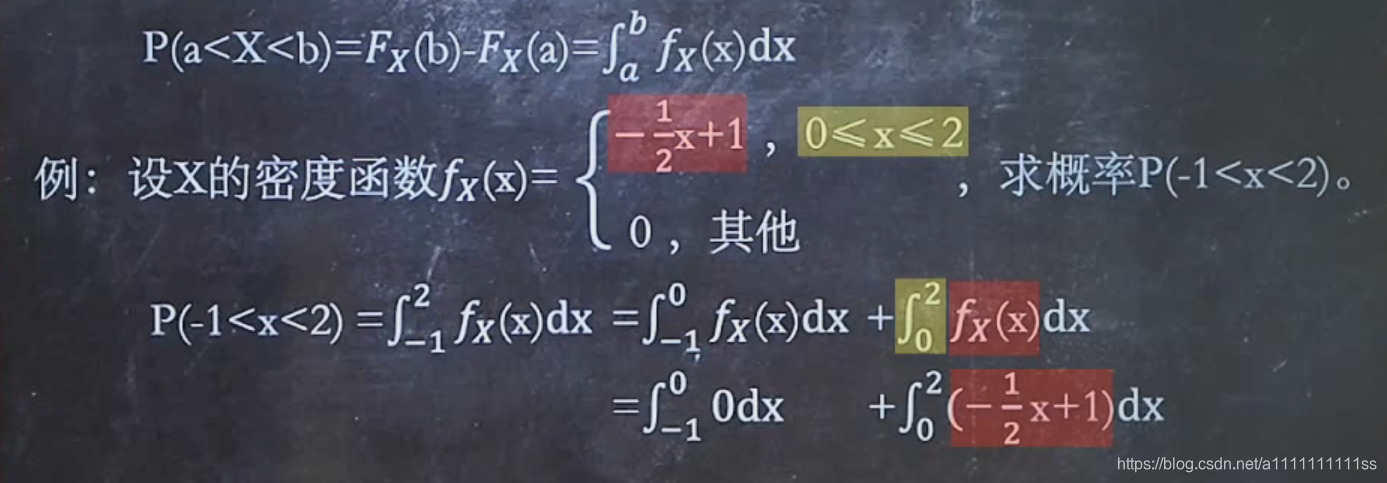 P(a<X<b)=F_X(b)-F_X(a)=∫_a^b f_X(x)dx
例：设X的密度函数f_X(x)= { -1/2x+1 ，0⩽x⩽2 ，求概率P(-1<x<2)。
0 ，其他
P(-1<x<2) =∫_{-1}^2 f_X(x)dx =∫_{-1}^0 f_X(x)dx +∫_0^2 f_X(x)dx
=∫_{-1}^0 0dx +∫_0^2 (-1/2x+1)dx
https://blog.csdn.net/a1111111111ss